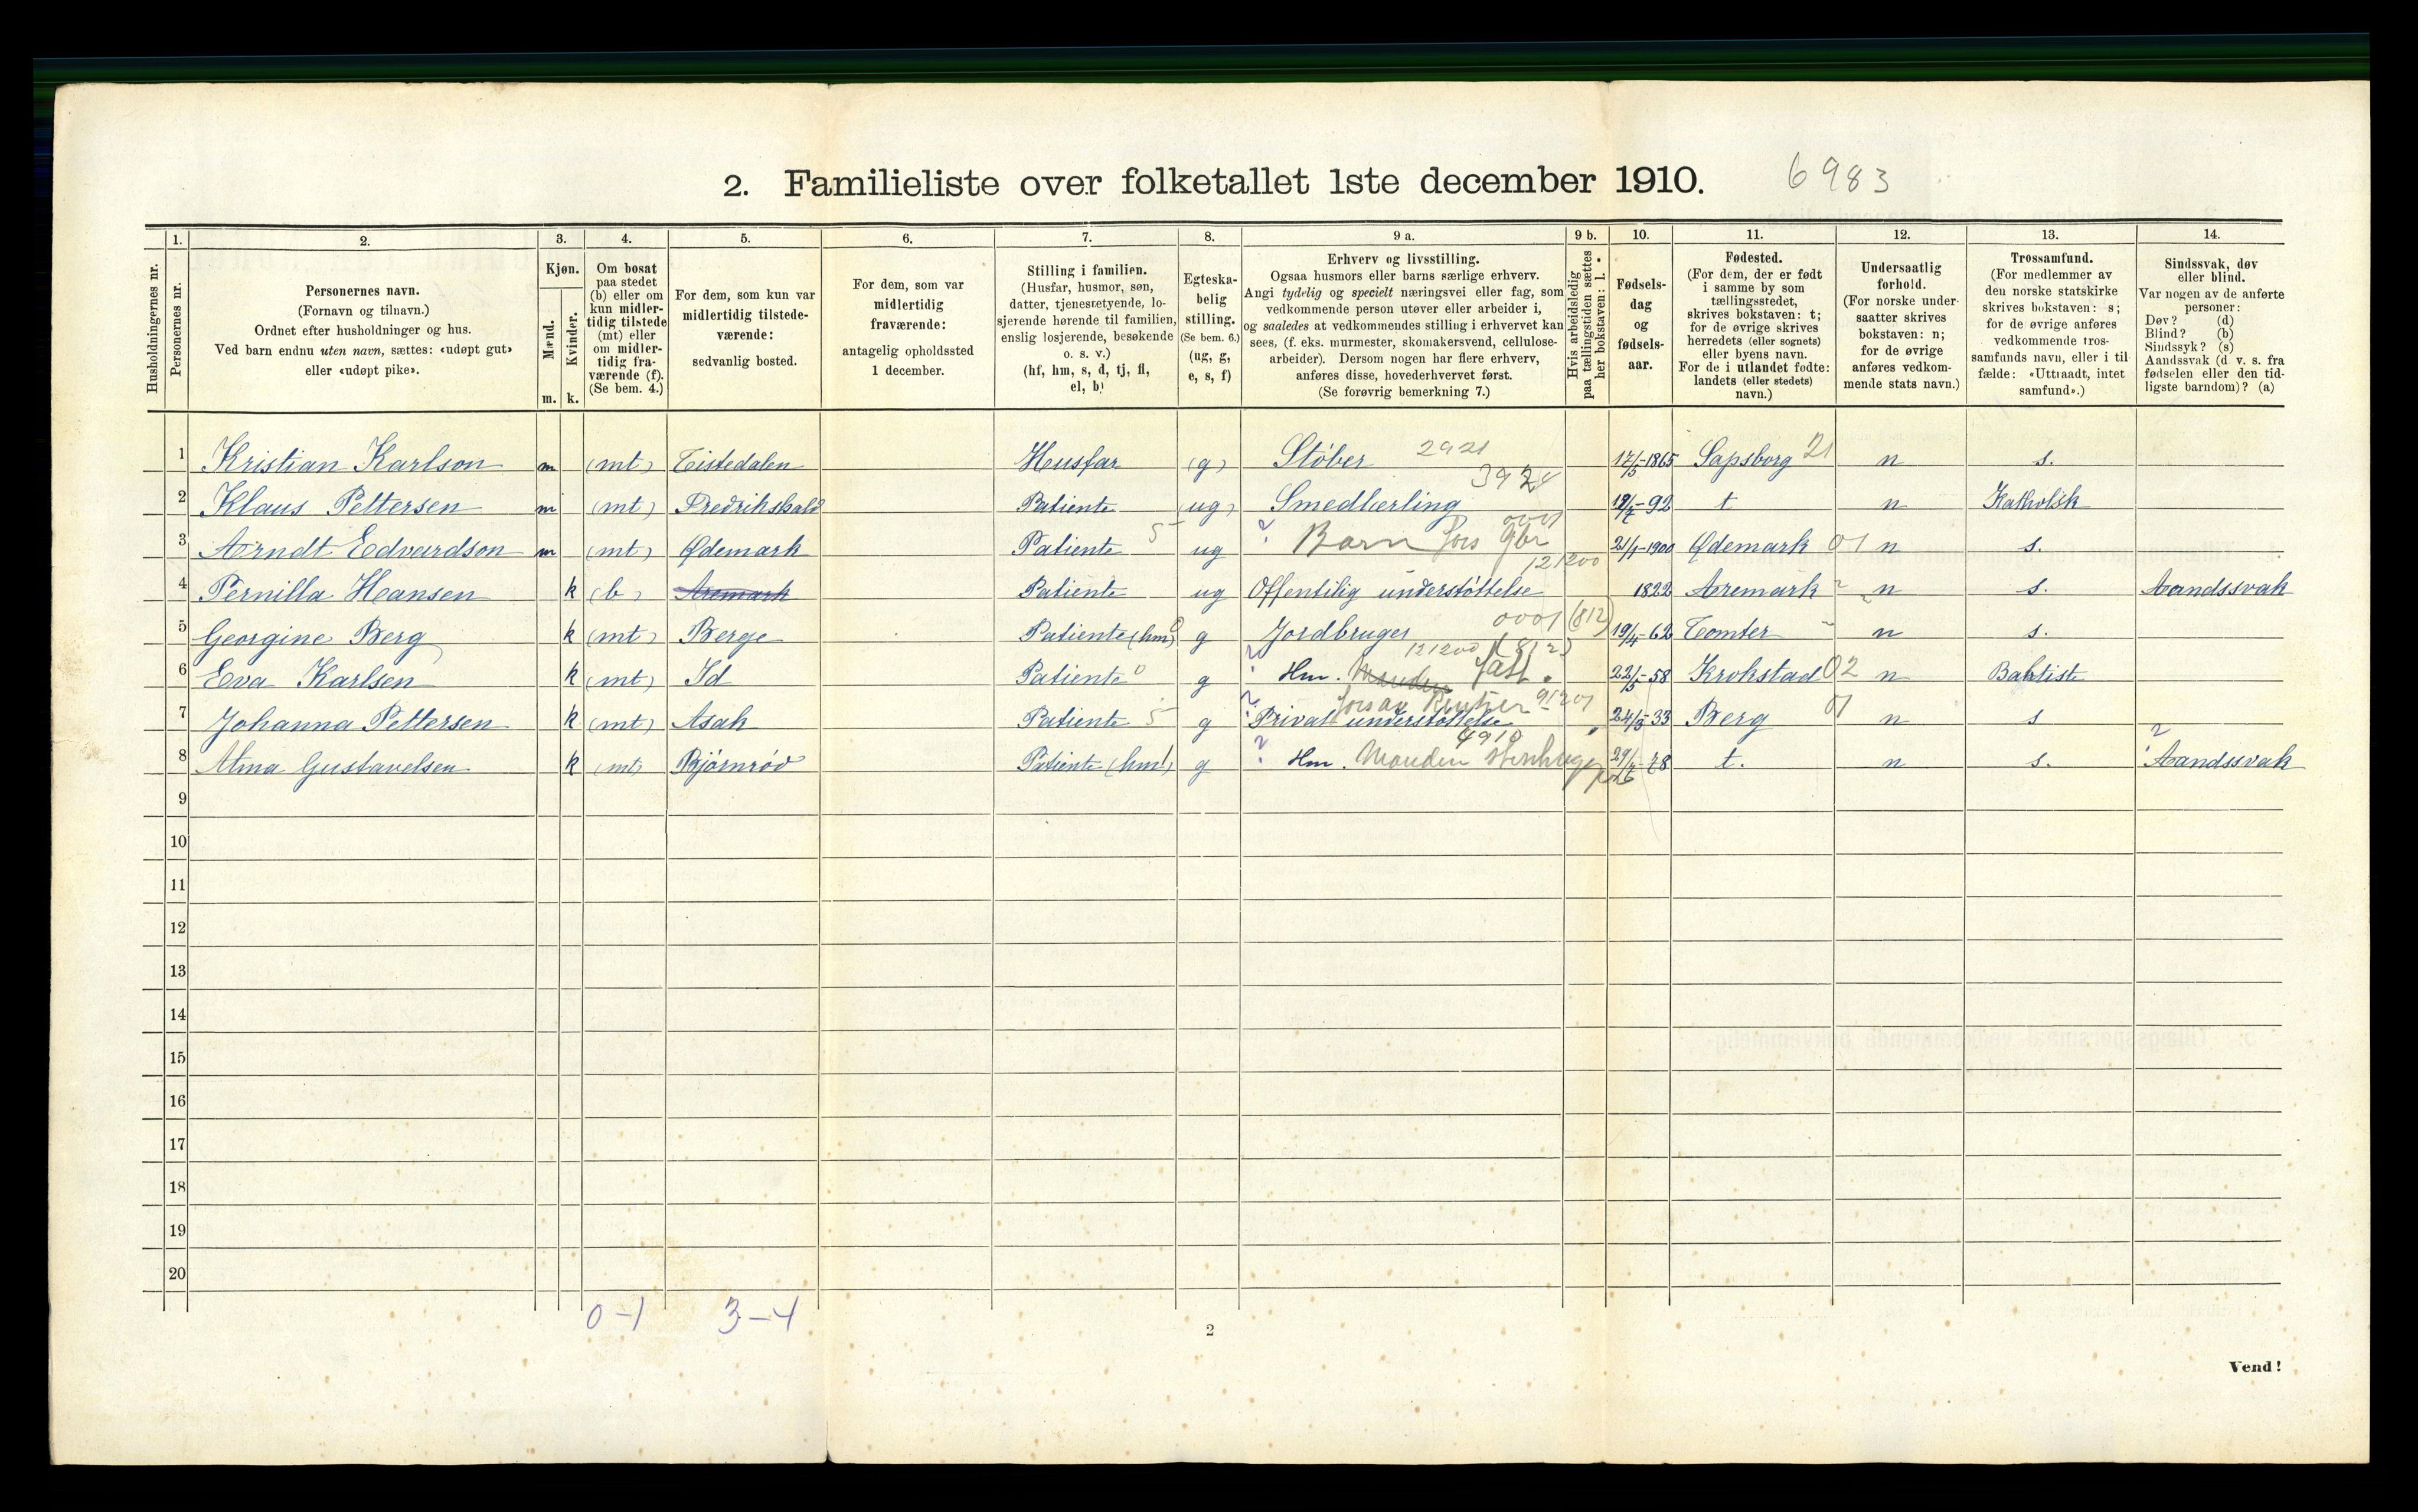 2. Familieliste over folketallet 1ste december 1910. 6983
1. 2. 3. 4. 5. 6. 7. 8. 9 a. 9 b. 10. 11. 12. 13. 14.
Husholdningernes nr.
Personernes nr.
Personernes navn.
(Fornavn og tilnavn.)
Ordnet efter husholdninger og hus.
Ved barn endnu uten navn, sættes: «udøpt gut»
eller «udøpt pike».
Kjøn.
Mænd.
Kvinder.
m. k.
Om bosat
paa stedet
(b) eller om
kun midler-
tidig tilstede
(mt) eller
om midler-
tidig fra-
værende (f).
(Se bem. 4.)
For dem, som kun var
midlertidig tilstede-
værende:
sedvanlig bosted.
For dem, som var
midlertidig
fraværende:
antagelig opholdssted
1 december.
Stilling i familien.
(Husfar, husmor, søn,
datter, tjenestetyende, lo-
sjerende hørende til familien,
enslig losjerende, besøkende
o. s. v.)
(hf, hm, s, d, tj, fl,
el, b)
Egteska-
belig
stilling.
(Se bem. 6.)
(ug, g,
e, s, f)
Erhverv og livsstilling.
Ogsaa husmors eller barns særlige erhverv.
Angi tydelig og specielt næringsvei eller fag, som
vedkommende person utøver eller arbeider i,
og saaledes at vedkommendes stilling i erhvervet kan
sees, (f. eks. murmester, skomakersvend, cellulose-
arbeider). Dersom nogen har flere erhverv,
anføres disse, hovederhvervet først.
(Se forøvrig bemerkning 7.)
Hvis arbeidsledig
paa tællingstiden sættes
her bokstaven: l.
Fødsels-
dag
og
fødsels-
aar.
Fødested.
(For dem, der er født
i samme by som
tællingsstedet,
skrives bokstaven: t;
for de øvrige skrives
herredets (eller sognets)
eller byens navn.
For de i utlandet fødte:
landets (eller stedets)
navn.)
Undersaatlig
forhold.
(For norske under-
saatter skrives
bokstaven: n;
for de øvrige
anføres vedkom-
mende stats navn.)
Trossamfund.
(For medlemmer av
den norske statskirke
skrives bokstaven: s;
for de øvrige anføres
vedkommende tros-
samfunds navn, eller i til-
fælde: «Uttraadt, intet
samfund».)
Sindssvak, døv
eller blind.
Var nogen av de anførte
personer:
Døv? (d)
Blind? (b)
Sindssyk? (s)
Aandssvak (d. v. s. fra
fødselen eller den tid-
ligste barndom)? (a)
1 Kristian Karlson m (mt) Tistedalen Husfar (g) Støber 2921 17/5-1865 Sapsborg 21 n s.
2 Klaus Pettersen m (mt) Fredrikshald Patiente (ug) Smedlærling -92 t n Katholsk
3 Arndt Edvardson m (mt) Ødemark Patiente 5 ug ? Barn Fors Gbr 0001 21/1-1900 Ødemark 01 n s.
4 Pernilla Hansen k (b) Aremark Patiente ug Offentilig understøttelse 121200 1822 Aremark n s. Aandssvak
5 Georgine Berg k (mt) Berge Patiente (hm) g Jordbruger 0001 (812) 19/4-62 Tomter n s.
6 Eva Karlsen k (mt) Id Patiente 0 g ? Hm. Manden 121200 (812) 22/5-58 Krokstad 02 n Babtist
7 Johanna Pettersen k (mt) Asak Patiente 5 g ? Privat understøttelse Fors av Rentier 91201 24/3-33 Berg 01 n s
8 Alma Gustavelsen k (mt) Bjørnrød Patiente (hm) g ? Hm. Manden 4910 -78 t. n s. ? Aandssvak
9
10
11
12
13
14
15
16
17
18
19
20
0-1 3-4
2
Vend!